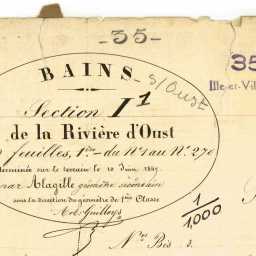 -35-
35
Ille-et-Vil
BAINS S/Oust
Section I¹
de la Rivière d'Oust
2 feuilles, 1re du No 1 au No 270
terminée sur le terrain le 10 Juin 1847
par Alagille géomètre secondaire
sous la direction du géomètre de 1ère Classe
1/1000
Nos Bis 3.